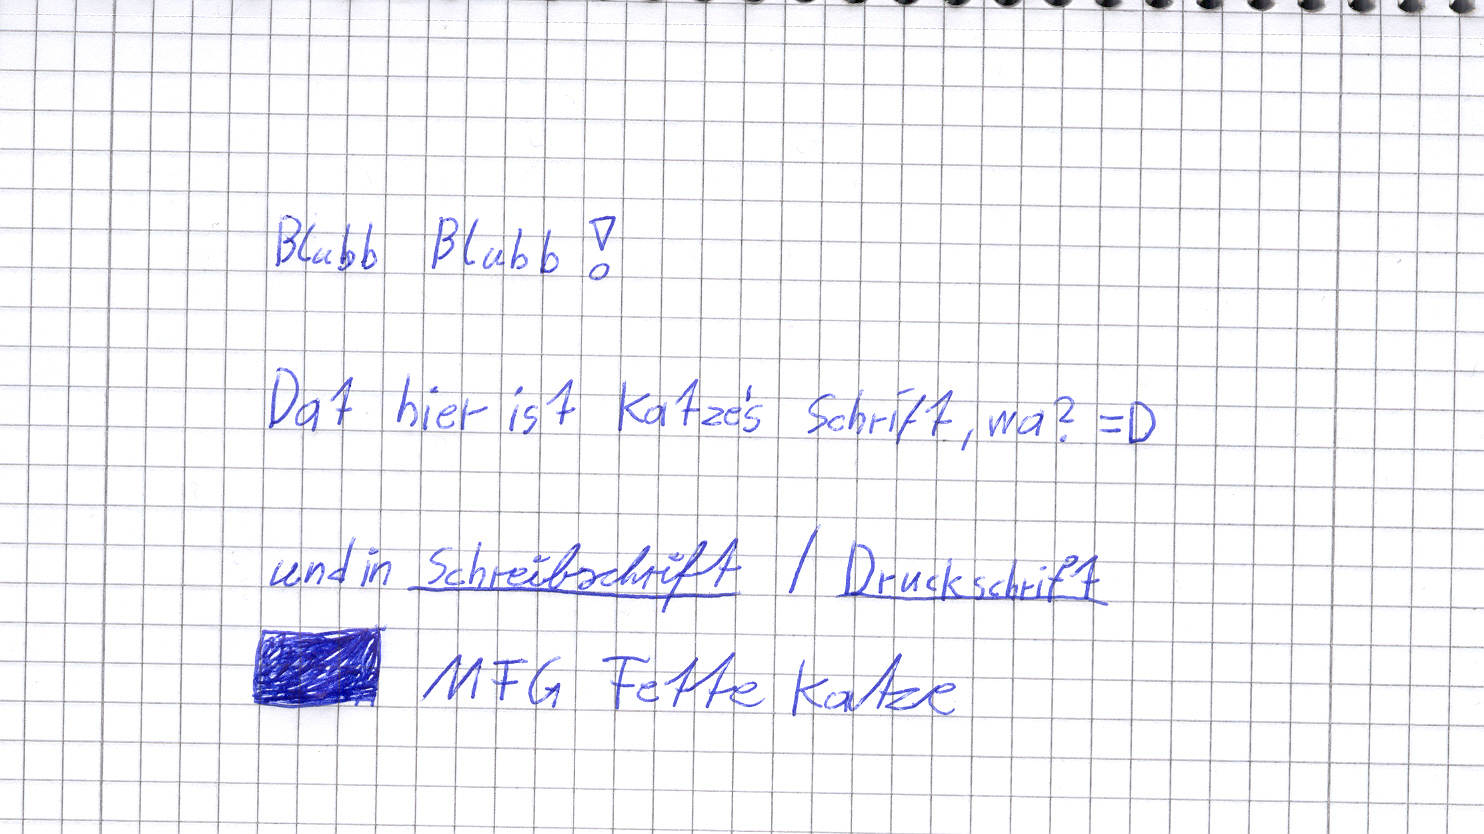 Blubb Blubb!
Dat hier ist Katze's Schrift, wa? =D
und in Schreibschrift / Druckschrift
MFG Fette Katze